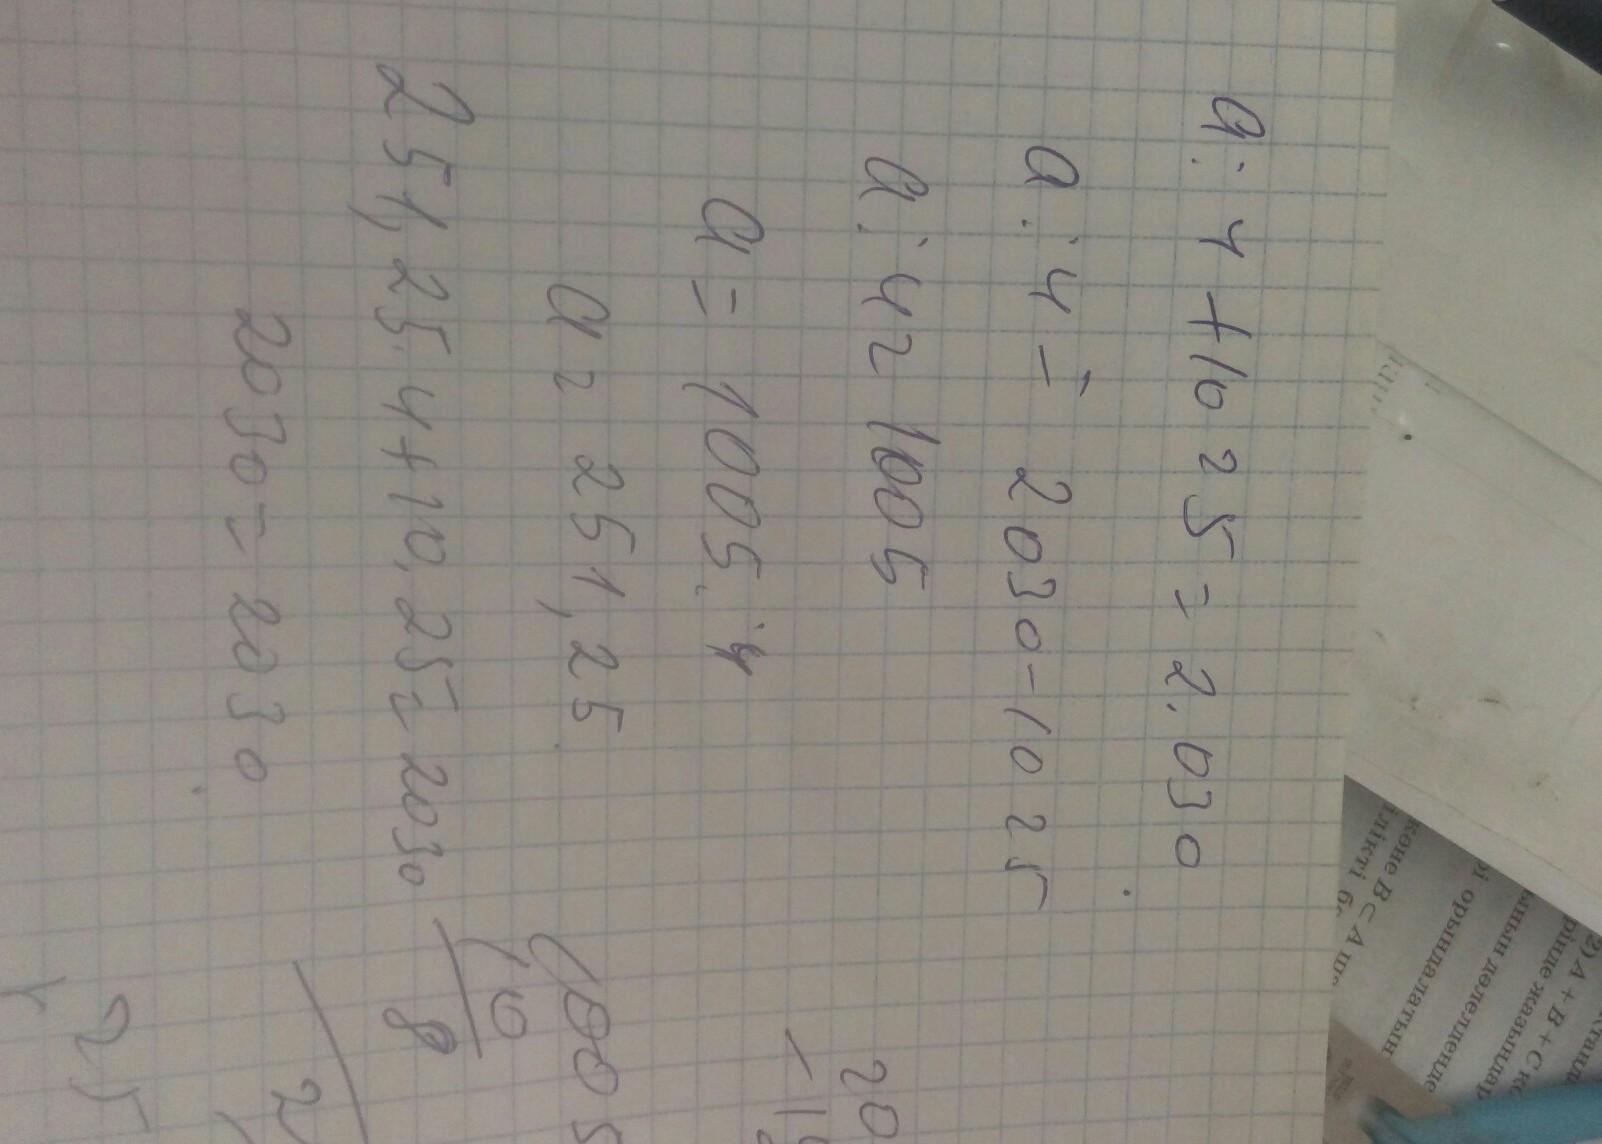 a : 4 + 1025 = 2.030
a : 4 = 2030-1025
a : 4 = 1005
a = 1005 : 4
a = 251,25
251,25. 4 + 10,25 = 2030
2030 = 2030
1005
16
8
2
25
20
- 1
2) A + B + C
рінде жазыңдар
ының дәлелденуі
орындалатын
және B ⊂ A